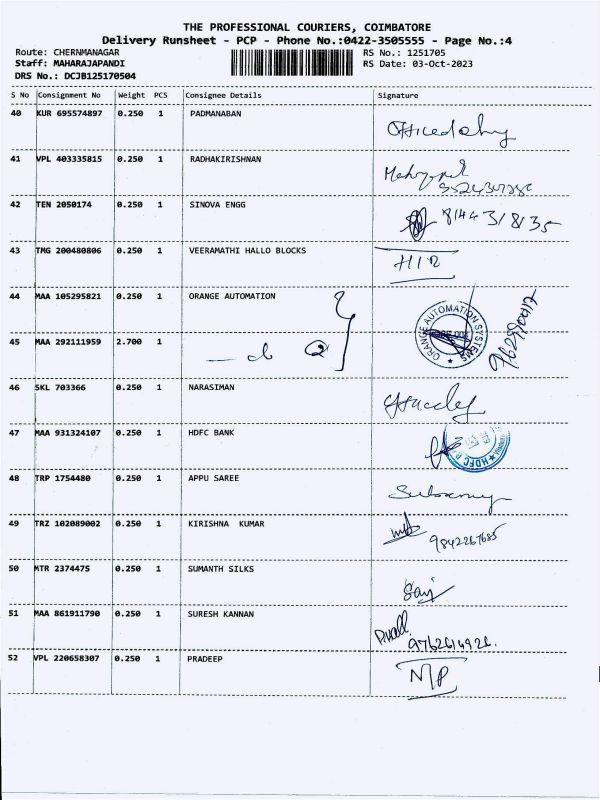 THE PROFESSIONAL COURIERS, COIMBATORE
Delivery Runsheet - PCP - Phone No.:0422-3505555 - Page No.:4
Route: CHERNMANAGAR RS No.: 1251705
Staff: MAHARAJAPANDI RS Date: 03-Oct-2023
DRS No.: DCJB125170504
S No Consignment No Weight PCS Consignee Details Signature
40 KUR 695574897 0.250 1 PADMANABAN
41 VPL 403335815 0.250 1 RADHAKIRISHNAN
42 TEN 2050174 0.250 1 SINOVA ENGG 8144318135
43 TMG 200480806 0.250 1 VEERAMATHI HALLO BLOCKS
44 MAA 105295821 0.250 1 ORANGE AUTOMATION
ORANGE AUTOMATION SYSTEMS
45 MAA 292111959 2.700 1
46 SKL 703366 0.250 1 NARASIMAN
47 MAA 931324107 0.250 1 HDFC BANK
HDFC
48 TRP 1754480 0.250 1 APPU SAREE
49 TRZ 102089002 0.250 1 KIRISHNA KUMAR
9842267685
50 MTR 2374475 0.250 1 SUMANTH SILKS
51 MAA 861911790 0.250 1 SURESH KANNAN
9762614926.
52 VPL 220658307 0.250 1 PRADEEP
MP